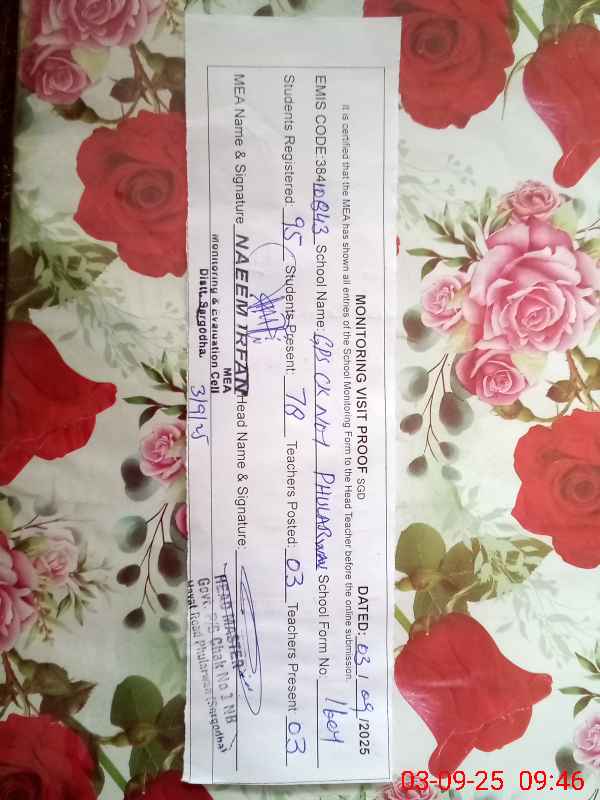 MONITORING VISIT PROOF SGD DATED: 03 / 09 /2025
It is certified that the MEA has shown all entries of the School Monitoring Form to the Head Teacher before the online submission.
EMIS CODE 384 School Name: GPS CK No1 PHULARWAN School Form No. 1604
Students Registered: 95 Students Present: 78 Teachers Posted: 03 Teachers Present 03
MEA Name & Signature NAEEM IRFAN Head Name & Signature:
MEA
Monitoring & Evaluation Cell
Distt. Sargodha
3/9/25
HEAD MASTER
Govt. P/S Chak No 1 NB
Hayat Road Phularwan (Sargodha)
03-09-25 09:46